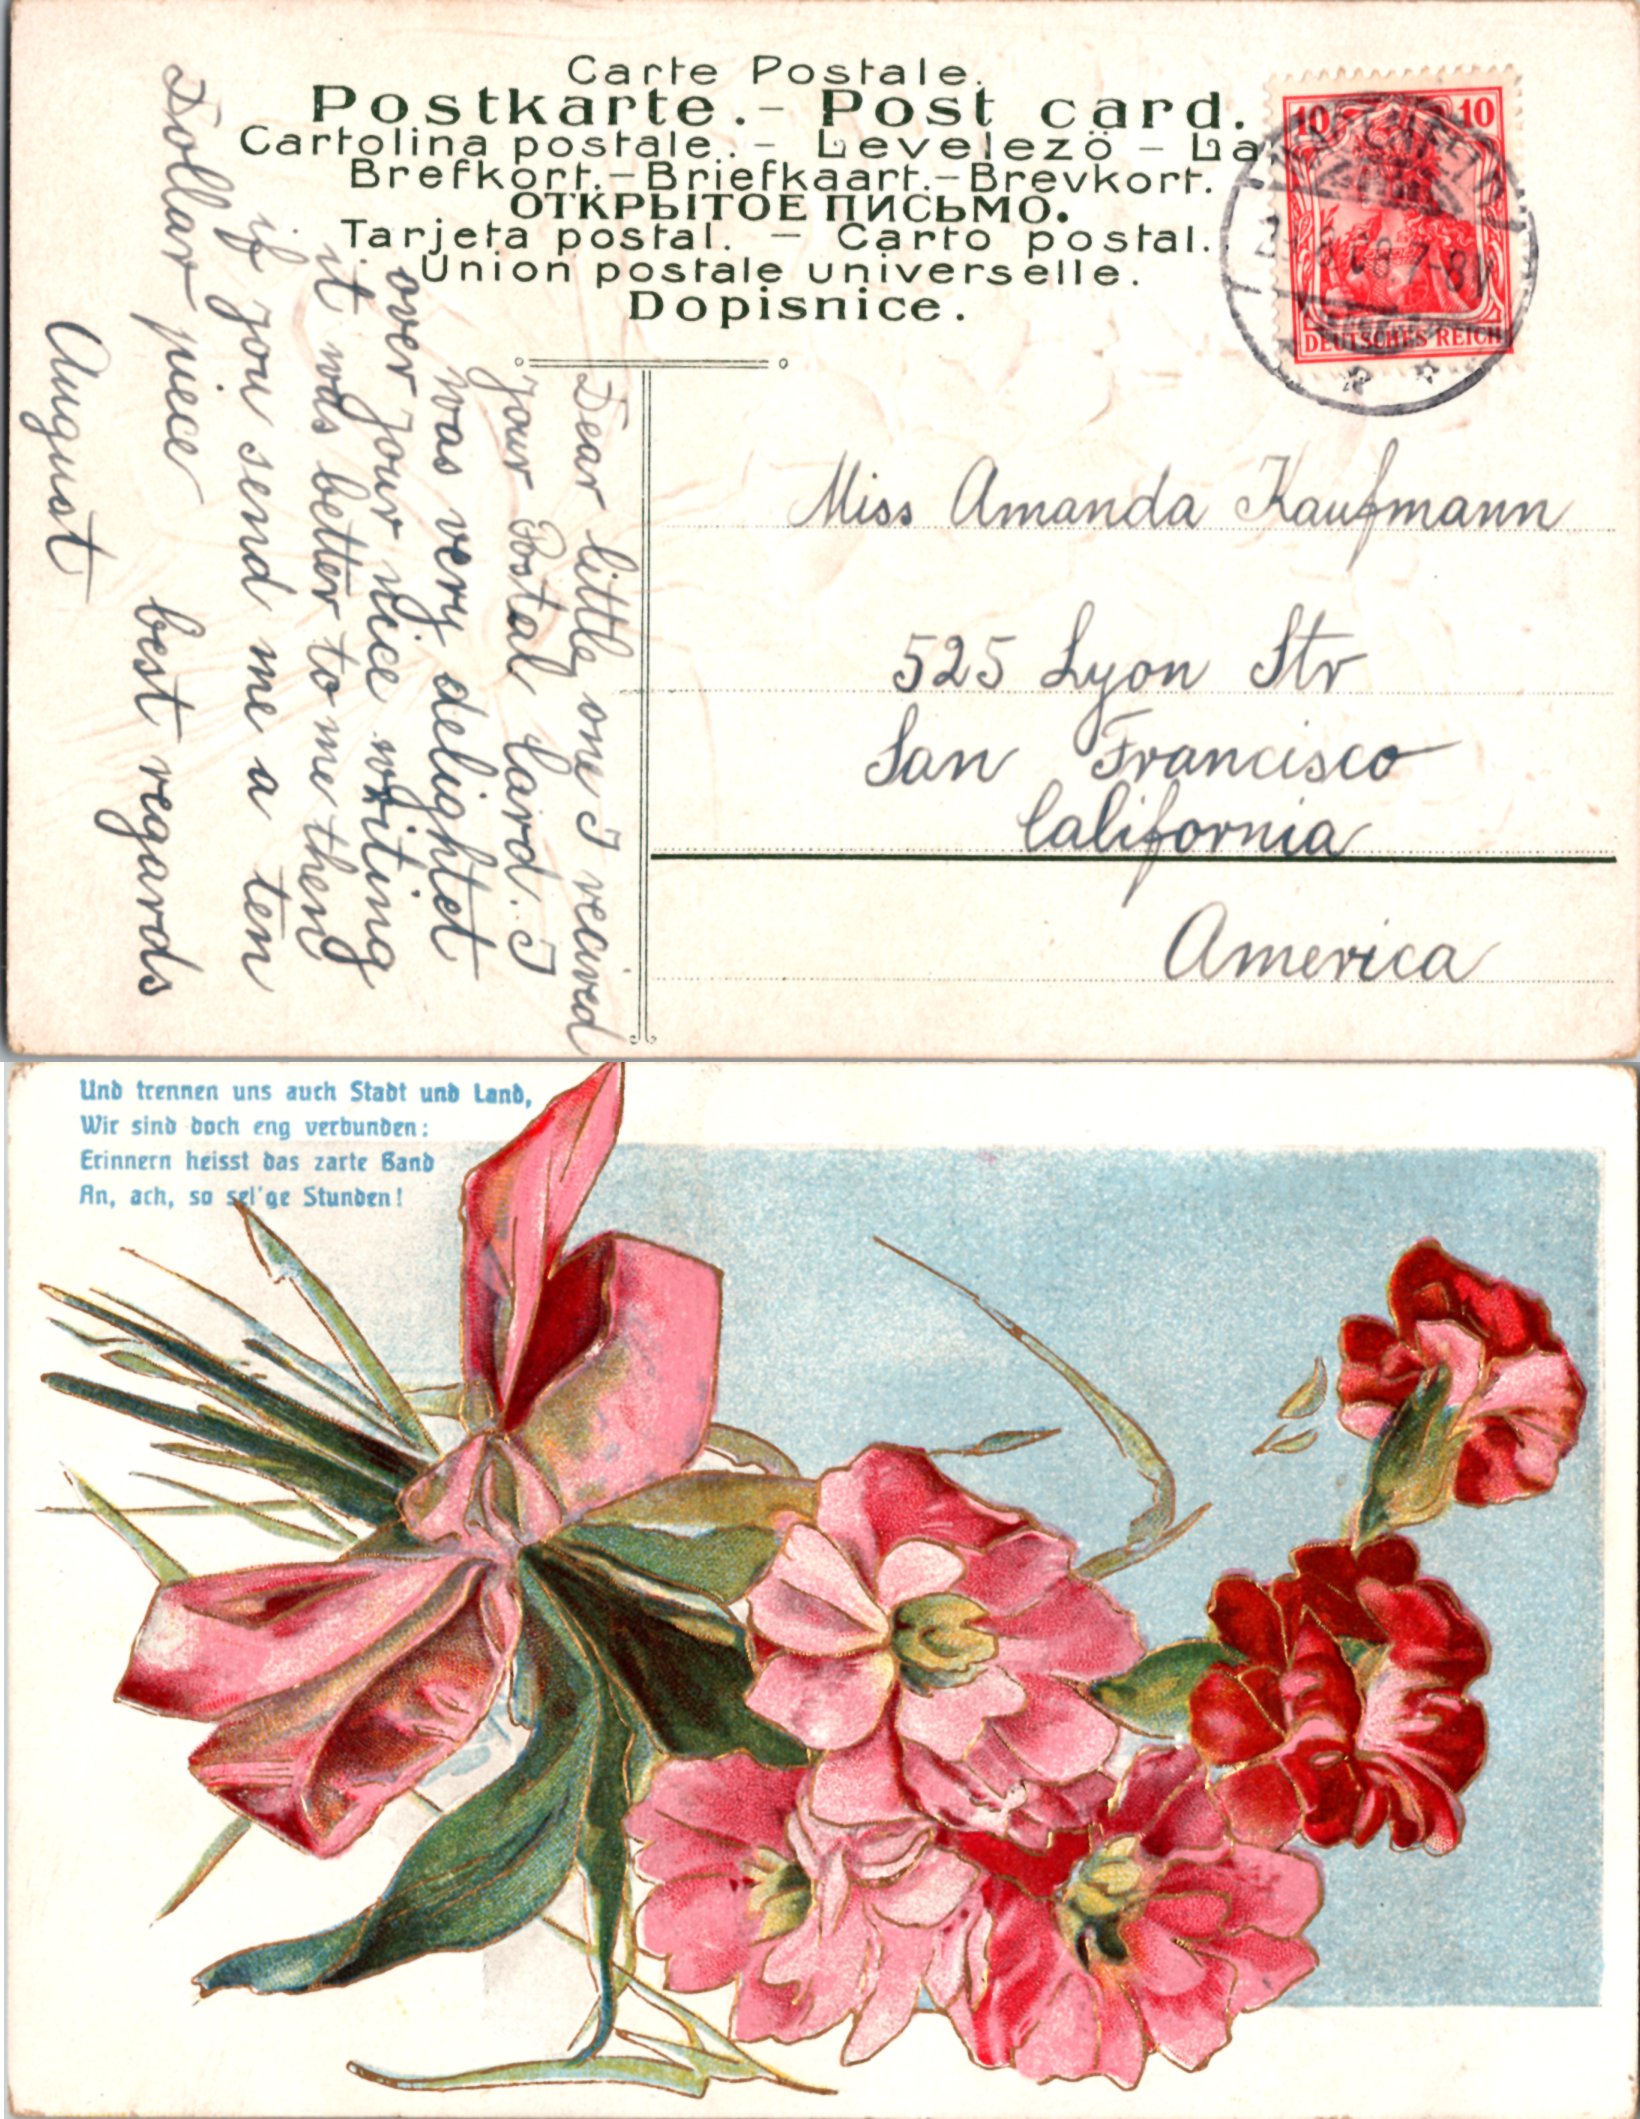 Carte Postale.
Postkarte. - Post card.
Cartolina postale. - Levelezö - La
Brefkort. - Briefkaart. - Brevkort.
ОТКРЫТОЕ ПИСЬМО.
Tarjeta postal. - Carto postal.
Union postale universelle.
Dopisnice.
10 10
DEUTSCHES REICH
7-8V
Dear little one I recived
Jour Postal Card. I
was very delightet
over Jour nice writing
it was better to me then
if Jou send me a ten
Dollar piece best regards
August
Miss Amanda Kaufmann
525 Lyon Str
San Francisco
California
America
Und trennen uns auch Stadt und Land,
Wir sind doch eng verbunden:
Erinnern heisst das zarte Band
An, ach, so sel'ge Stunden!